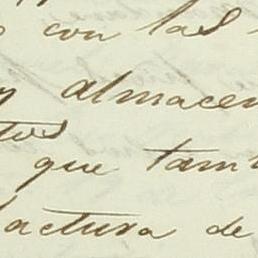 con las
y almacen
tos
que tam
factura de